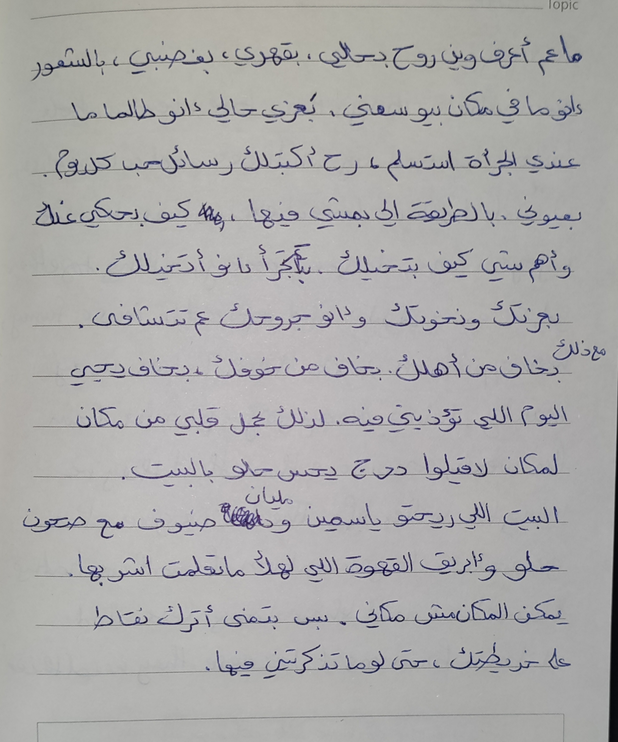 Topic
ما عم أعرف وين روح بحالي، بقهري، بغضبي، بالشعور
إنو ما في مكان بيوسعني. بعزي حالي إنو طالما ما
عندي الجرأة استسلم، رح أكبتلك رسائل حب كل يوم.
بعيوني، بالطريقة الي بمشي فيها، كيف بحكي عنك
وأهم شي كيف بتخيلك. بتجرأ انو أتخيلك.
بعزتك ونخوتك وإنو جروحك عم تتشافى.
مع ذلك
بخاف من أهلك. بخاف من خوفك، بخاف يجي
اليوم اللي تؤذيني فيه. لذلك بجل قلبي من مكان
لمكان لاقيلوا درج يحس حالو بالبيت.
مليان
البيت اللي ريحتو ياسمين و ضيوف مع صحون
حلو وإبريق القهوة اللي لهلأ ماتعلمت اشربها.
يمكن المكان مش مكاني. بس بتمنى أترك نقاط
على خريطتك، حتى لو ما تذكرتيني فيها.